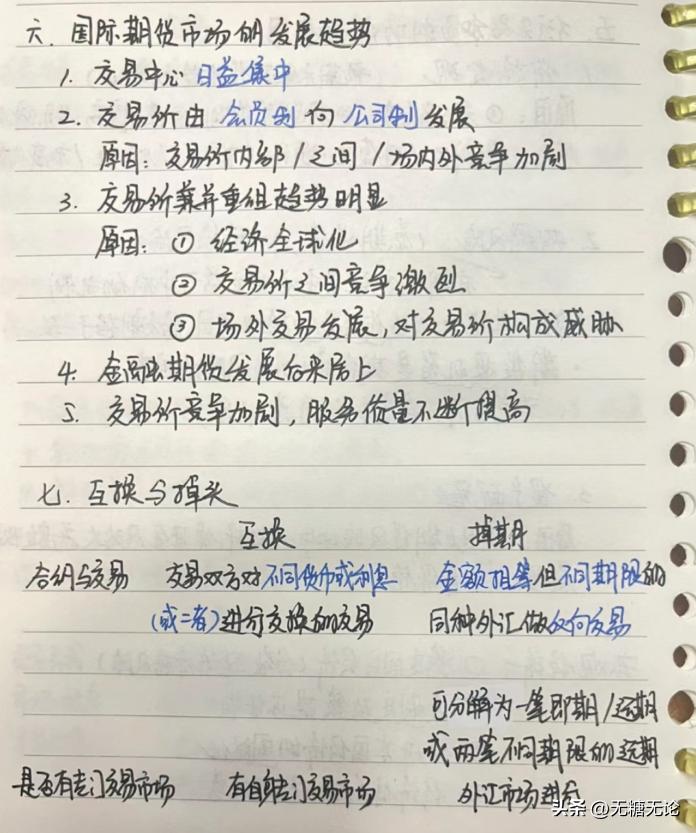 六. 国际期货市场的发展趋势
1. 交易中心 日益集中
2. 交易所由 会员制 向 公司制 发展
原因: 交易所内部 / 之间 / 场内外竞争加剧
3. 交易所兼并重组趋势明显
原因: ① 经济全球化
② 交易所之间竞争激烈
③ 场外交易发展, 对交易所构成威胁
4. 金融期货发展后来居上
5. 交易所竞争加剧, 服务质量不断提高
七. 互换与掉头
互换 掉期
合约与交易 交易双方对不同货币或利息 金额相等但不同期限的
(或二者)进行交换的交易 同种外汇做反向交易
可分解为一笔即期/远期
或两笔不同期限的远期
是否有专门交易市场 有自专门交易市场 外汇市场进行
头条 @无糖无论